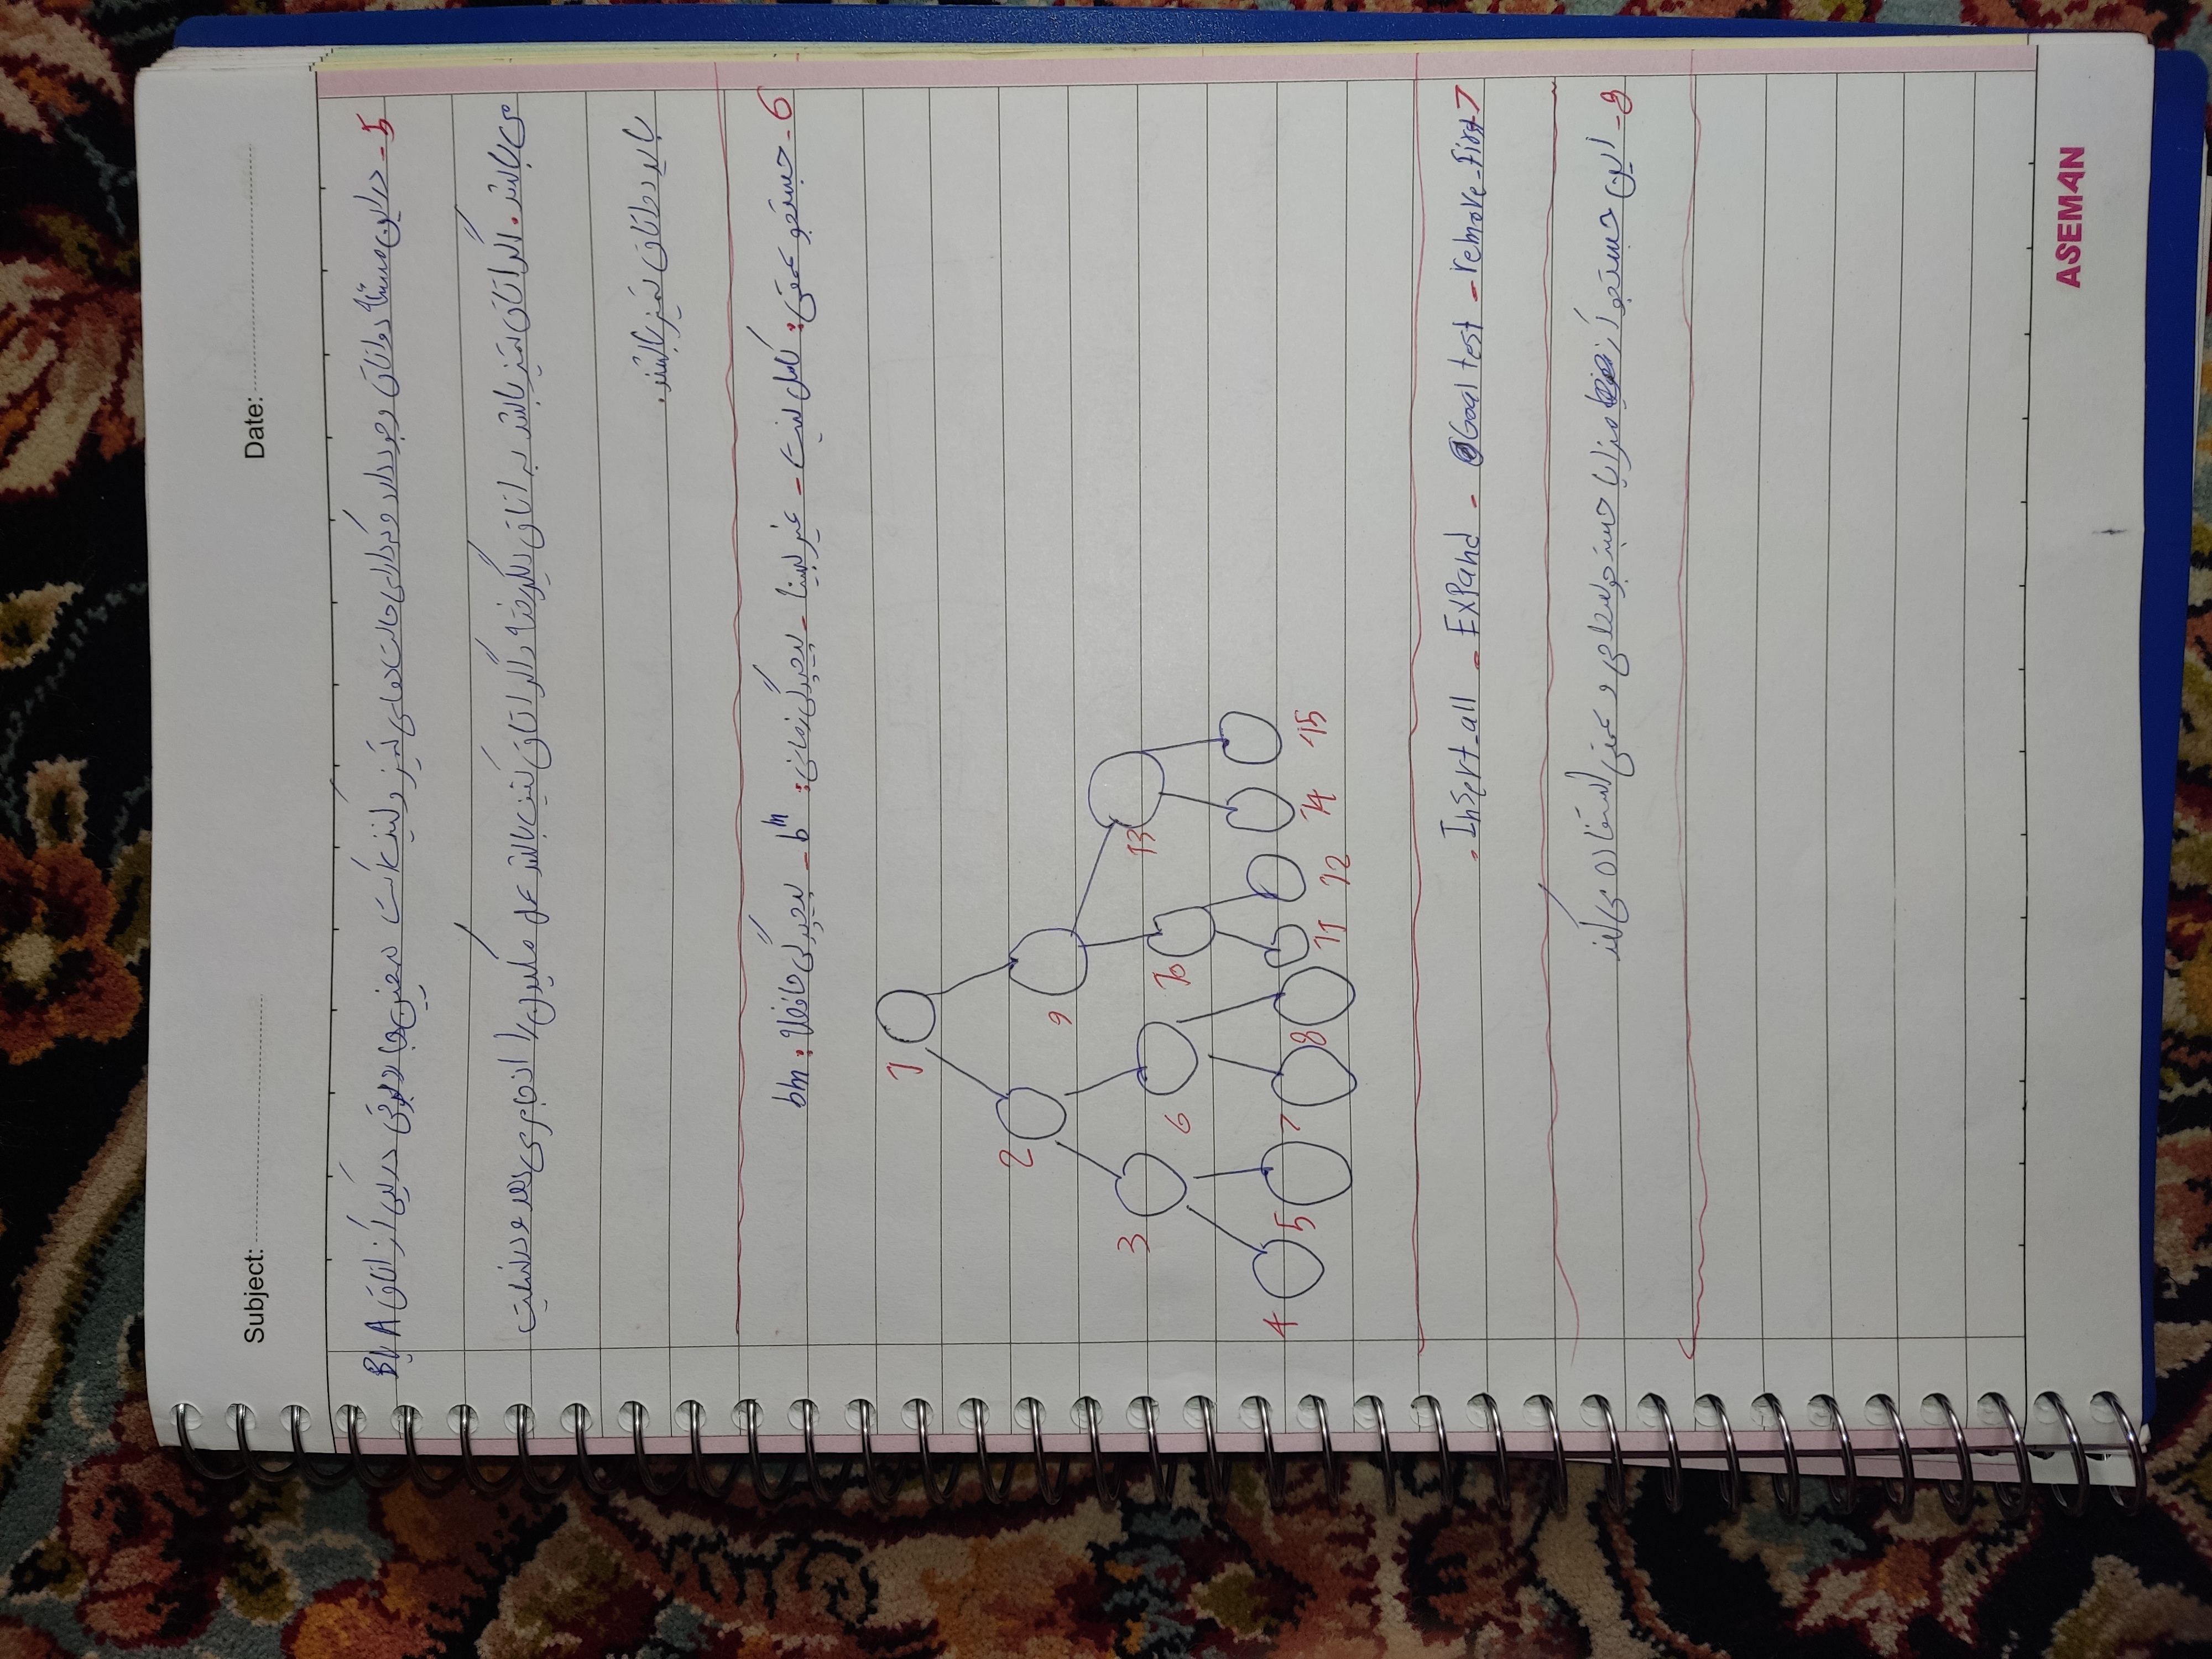 Subject:
Date:
5- در این مسئله دو اتاق وجود دارد و که دارای حالت های تمیز و کثیف است همچنین جاروبرقی در یکی از اتاق A یا B
می باشد. اگر اتاق تمیز باشد به اتاق دیگر رفته و اگر اتاق کثیف باشد عمل مکیدن را انجام می دهد و در نهایت
باید دو اتاق تمیز باشند.
6- جستجو عمقی: کامل نیست - غیر بهینه - پیچیدگی زمانی: b^m - پیچیدگی حافظه: bm
1
2
9
3
6
10
13
4
5
7
8
11
12
14
15
7- remove-first - Goal test - Expand - Insert-all.
8- این جستجو از مزایا جستجو سطحی و عمقی استفاده می کند
ASEMAN